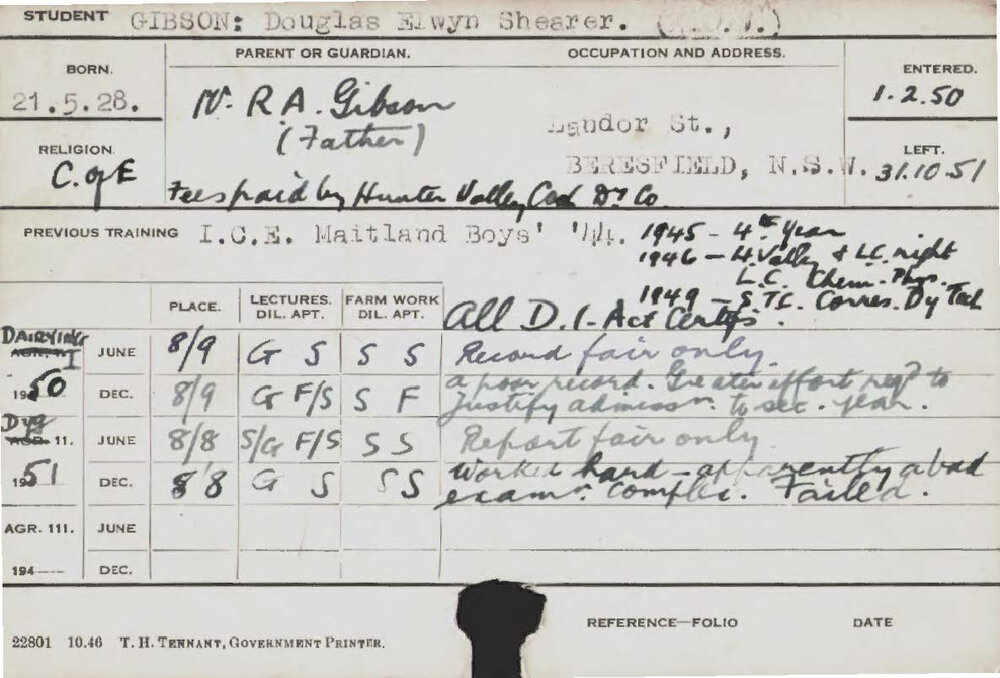 STUDENT GIBSON: Douglas Elwyn Shearer. (N.S.W.)
BORN. PARENT OR GUARDIAN. OCCUPATION AND ADDRESS. ENTERED.
21.5.28. Mr. R A. Gibson 1.2.50
(Father) Landor St.,
RELIGION. LEFT.
C. of E BERESFIELD, N.S.W. 31.10.51
Fees paid by Hunter Valley Co
PREVIOUS TRAINING I.C.E. Maitland Boys' '44. 1945 - 4th Year
1946 - H. Valley & L.C. night
L.C. Chem. Phys.
1949 - S.T.C. Corres. Dy Tech
PLACE. LECTURES. DIL. APT. FARM WORK DIL. APT. All D.I. Act Certifs.
DAIRYING AGR. I JUNE 8/9 G S S S Record fair only.
1950 DEC. 8/9 G F/S S F a poor record. Greater effort reqd to
justify admissn. to sec. year.
Dyg AGR. 11. JUNE 8/8 S/G F/S S S Report fair only
1951 DEC. 8/8 G S S S Worked hard - apparently a bad
examn. complex. Failed.
AGR. 111. JUNE
194 DEC.
REFERENCE—FOLIO DATE
22801 10.46 T. H. TENNANT, GOVERNMENT PRINTER.